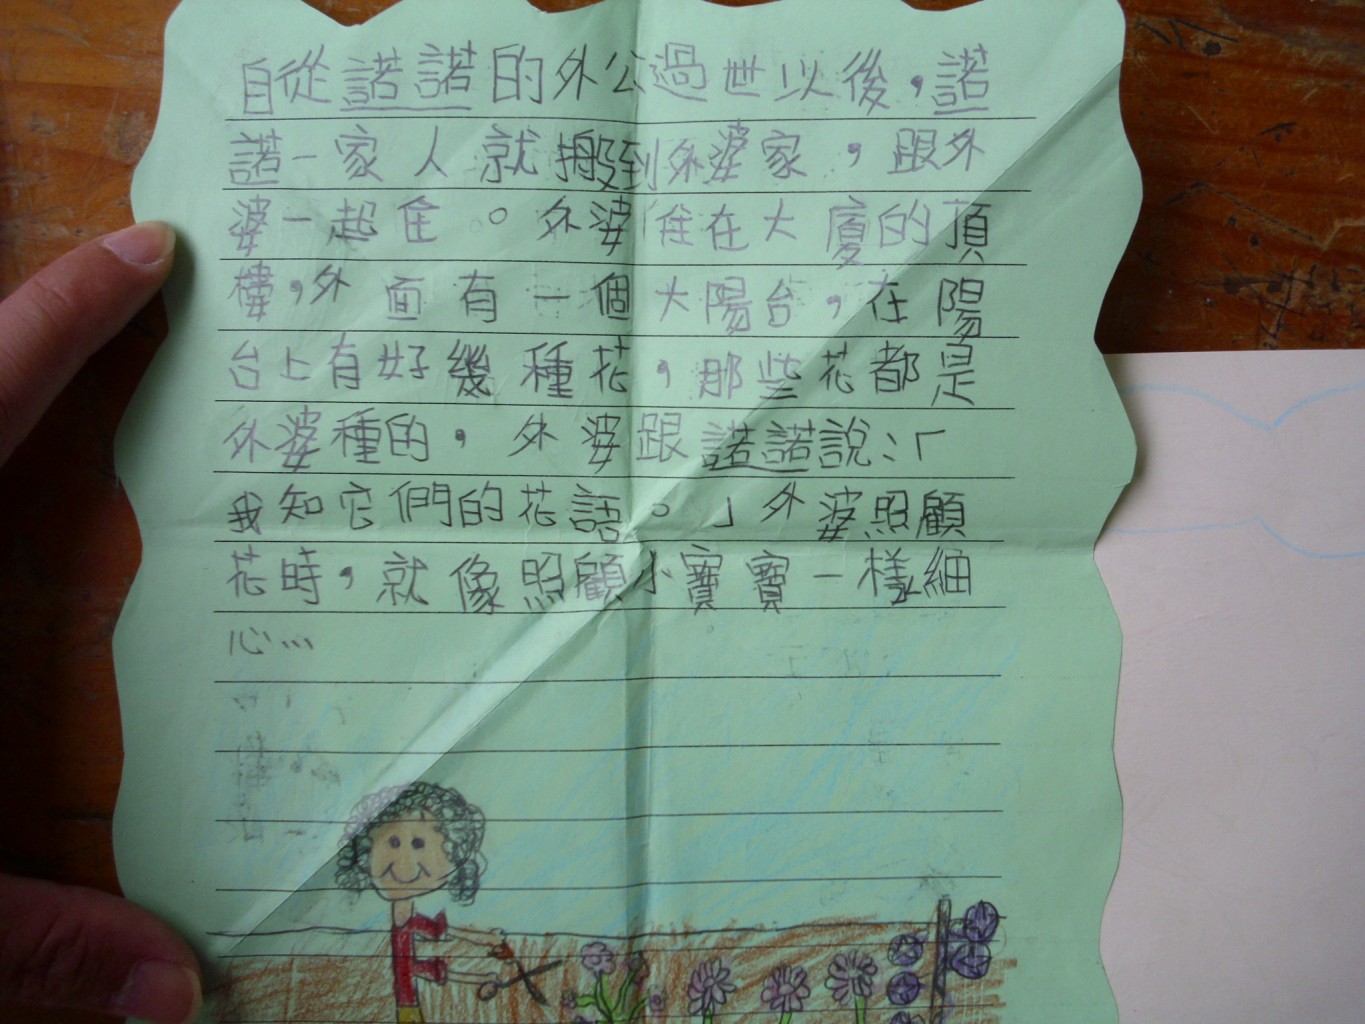 自從諾諾的外公過世以後，諾
諾一家人就搬到外婆家，跟外
婆一起住。外婆住在大廈的頂
樓，外面有一個大陽台，在陽
台上有好幾種花，那些花都是
外婆種的，外婆跟諾諾說：「
我知它們的花語。」外婆照顧
花時，就像照顧小寶寶一樣細
心…